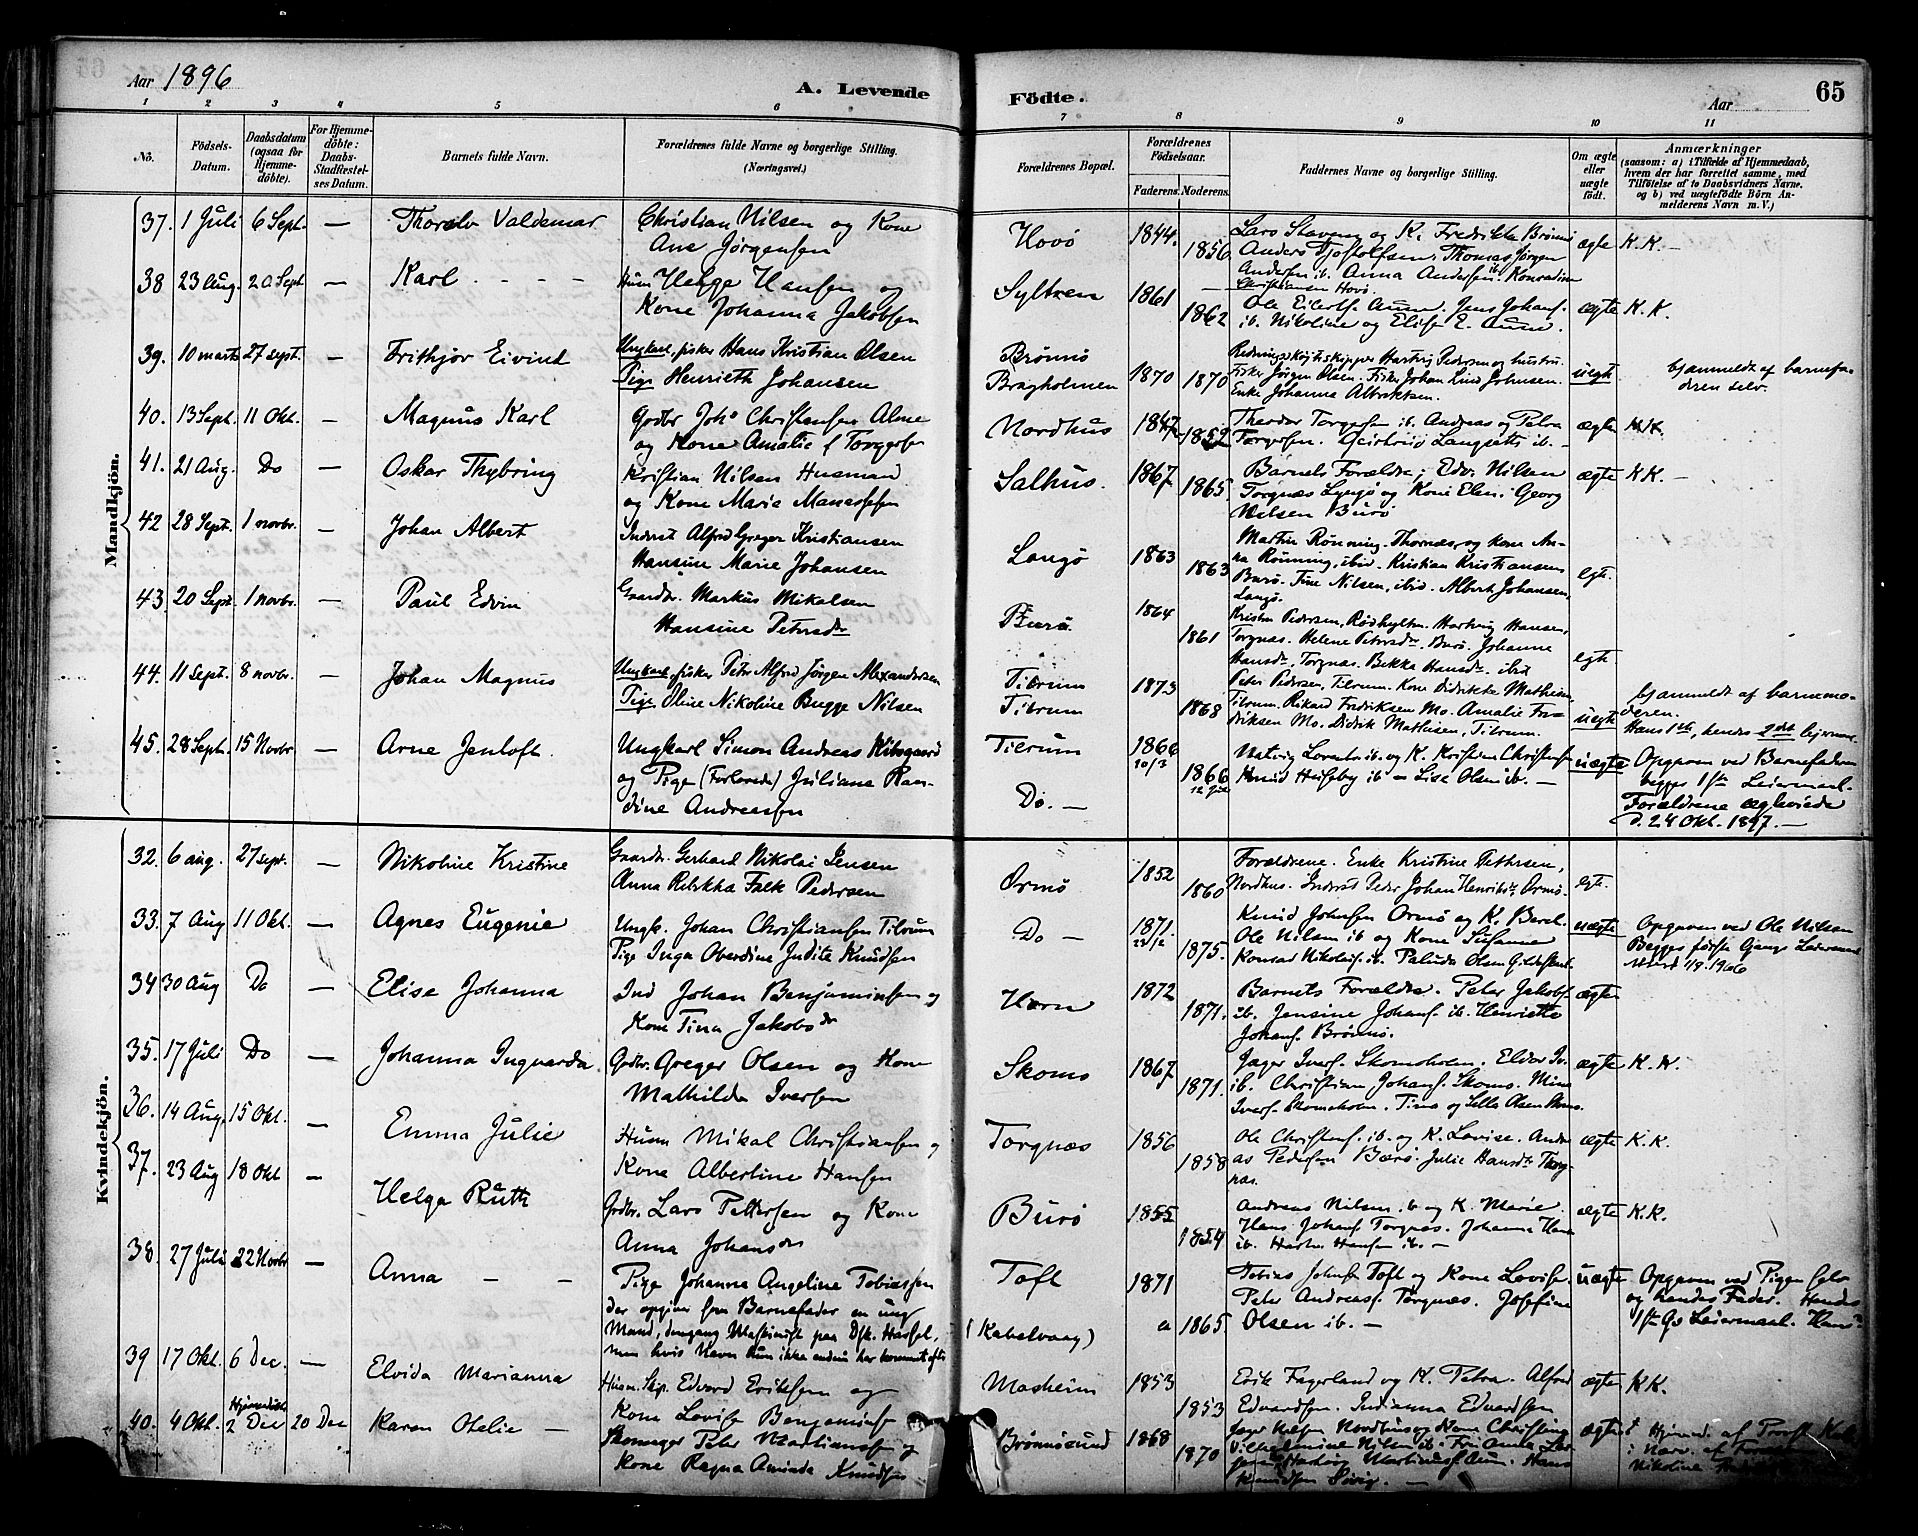 Aar 1896
A. Levende
Födte.
Aar
65
1 2 3 4 5 6 7 8 9 10 11
No.
Födsels-Datum.
Daabsdatum (ogsaa for Hjemme-döbte).
For Hjemme-döbte: Daabs-Stadfæstel-ses Datum.
Barnets fulde Navn.
Forældrenes fulde Navne og borgerlige Stilling. (Næringsvei.)
Forældrenes Bopæl.
Forældrenes Födselsaar.
Faderens. Moderens.
Faddernes Navne og borgerlige Stilling.
Om ægte eller uægte födt.
Anmærkninger
(saasom: a) i Tilfælde af Hjemmedaab, hvem der har forrettet samme, med Tilföielse af to Daabsvidners Navne, og b) ved uægtefödte Börn An-melderens Navn m. V.)
Mandkjön.
37. 1 Juli 6 Sept. — Thoralv Valdemar
Christian Nilsen og Kone
Ane Jørgensen
Hovö 1844. 1856
Lars Stavem og K. Fredrikke Brönnö
Anders Tjostolfsen, Thomas Jørgen
Andersen ib. Anna Andersen ib. Konradine
Christiansen Hovö.
ægte K.K. —
38 23 Aug. 20 Sept — Karl - - - -
Husm Helge Hansen og
Kone Johanna Jakobsen
Syltren 1861 1862
Ole Eilertsen. Jens Johans.
ib. Nikoline og Elise E.
ægte K.K.
39. 10 marts 27 sept. — Frithjov Eivind
Ungkarl, fisker Hans Kristian Olsen
Pige Henrieth Johansen
Brönnö
Bragholmen 1870 1870
Redningsskøjteskipper Hartvig Pedersen og hustru.
Fisker Jörgen Olsen. Fisker Johan Lind Johnsen.
Enke Johanna Albrektsen.
uegt.
bjanmeldt af barnefa-
deren selv.
40. 13 Sept. 11 Okt. — Magnus Karl
Gdbr Johs Christensen Alme
og Kone Amalie f Torgersen
Nordhus 1847 1852
Theodor Torgersen ib. Andreas og Petra
Torgersen. Langseth ib. —
ægte K.K.
41. 21 Aug. Do — Oskar Thybring
Kristian Nilsen Husmand
og Kone Marie Manassesen
Salhus. 1867 1865
Barnets Forældre; Edv. Nilsen
Torgnæs Lyngö og Kone Elen. Georg
Nilsen Burö
ægte K.K. —
42 28 Sept. 1 novbr. — Johan Albert
Inderst Alfred Greger Kristiansen
Hansine Marie Johansen
Langö 1863 1863
Martin Rönning. Thornæs, og kone An-
na Rönning, ibid. Kristian Kristiansen
Burö. Tine Nilsen, ibid. Albert Johansen,
Langö.
egt.
43. 20 Sept. 1 novbr. — Paul Edvin
Gaardbr. Markus Mikalsen
Hansine Petersdr
Burö. 1864 1861
Kristen Pedersen, Rödhylten. Hartvig Hansen,
Torgnæs. Helene Petersdr, Burö. Johanne
Hansdr, Torgnæs. Bekka Hansdr. ibid
egt.
44. 11 Sept. 8 novbr. — Johan Magnus
Ungkarl, fisker Peter Alfred Jörgen Alexandersen
Pige Oline Nikoline Bugge Nilsen
Tilrum
Tilrum 1873 1868
Peter Pedersen, Tilrum. Kone Didrikke Mathisen,
Tilrum. Rikard Fredriksen Mo. Amalie Fre-
driksen Mo. Didrik Mathisen, Tilrum.
uegt
bjanmeldt af barnemo-
deren.
Hans 1ste, hendes 2det lejermaal.
45. 28 Sept. 15 Novbr — Arne Jenloft.
Ungkarl Simon Andreas Kilsgaard
og Pige (Forlovede) Juliane Ran-
dine Andreassen
Tilrum
Do. — 1866 20/3 1866 12 Juli
K. Kristine Christensen
Knud Husby ib — Lise Olsen ib. —
uægte
Opgaven ved Barnefaderen
begges 1ste Leiermaal.
Forældrene ægteviede
d. 24 Okt. 1897. —
Kvindekjön.
32. 6 aug. 27 sept. — Nikoline Kristine
Gaardbr. Gerhard Nikolai Jensen
Anna Rebekka Falk Pedersen
Ormö 1852 1860
Forældrene. Enke Kristine Pettersen,
Nordhus. Inderst Peder Johan Henriksen Ormö.
egt.
33. 7 Aug 11 Okt. — Agnes Eugenie
Ungk. Johan Christiansen Tilrum
Pige Inga Oberdine Judite Knudsen
Do — 1871. 1875.
Knud Johnsen Ormö og K. Berel.
Ole Nilsen ib og Kone Susanne
Konrad Nikolais. ib. Paluda Olsen
uægte
Opgaven ved Ole Nilsen
Begges første Gangs Leiermaal
34 30 Aug Do — Elise Johanna
Ind Johan Benjaminsen og
Kone Tina Jakobsdr
Horn 1872 1871.
Barnets Forældre. Peter Jakobs.
ib. Jensine Johans. ib. Henriette
Johans. Brönnö.
ægte
35. 17 Juli Do — Johanna Ingvarda
Gdbr. Greger Olsen og Kone
Mathilda Iversen
Skoms 1867 1871.
Jager Ivers. Skomsholm. Eldor Iv.
ib. Christian Johans. Skoms. Mina
Ivers. Skomsholm. Tina og Sella Olsen Skoms.
ægte K.K.
36. 14 Aug. 15 Okt. — Emma Julie
Husm Mikal Christiansen og
Kone Albertine Hansen
Torgnæs 1856 1858
Ole Christens. ib. og K. Lovise. Andre
as Pedersen Bærö. Julie Hansdr. Torg-
næs.
ægte K.K.
37. 23 Aug 18 Okt. — Helga Ruth
Gdbr. Lars Pettersen og Kone
Anna Johansdr
Burö 1855 1854
Andreas Nilsen ib og K. Marie.
Hans Johans Torgnæs. Johanna Hans
ib. Hansen ib. —
ægte K.K.
38. 27 Juli 22 Novbr — Anna — —
Pige Johanna Angeline Tobiassen
der opgiver som Barnefader en ung
Mand, dengang Maskinist paa Dsk. Hassel,
men hvis Navn hun ikke endnu har kommet efter
Toft
(Kabelvaag) 1871 1865
Tobias Johnsen Toft og Kone Lovise.
Peter Andreas. Torgnæs. Josefine
Olsen ib. —
uægte
Opgaven ved Pigen selv
og hendes Fader. Hendes
1ste Gs Leiermaal.
39 17 Okt. 6 Dec. — Elvida Marianna
Husm. Skp. Edvard Eriksen og
Kone Lovise Benjamins.
Mosheim 1853 1853
Erik Fagerland og K. Petra. Alfred
Edvardsen. Indianna Edvardsen
ægte K.K.
40. 4 Okt. Hjemmedøbt 2 Dec 20 Dec Karen Otelie —
Skomager Peter Martiniussen og
Kone Ragna Aminda Knudsen
Brönnösund 1868 1870
Nordhus og Kone Christine
Vilhelmine Nilsen ib. Fru Anna
Hartvig Martinius.
Knudsen Sövig. —
ægte
Hjemmed. af Provst
i Nærv. af
Nikoline